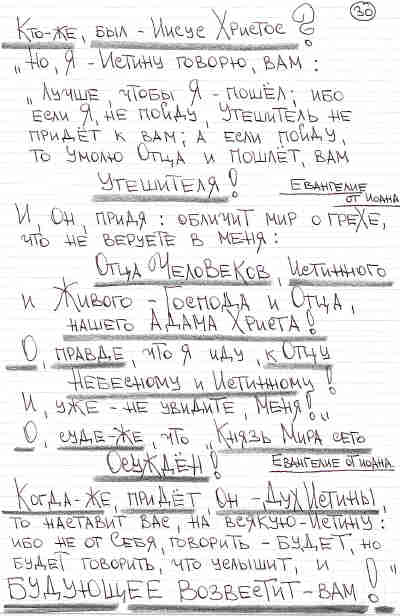 30
Кто-же, был - Иисус Христос?!
„Но, Я - Истину говорю, вам:
„Лучше, чтобы Я - пошёл; ибо
если Я, не пойду, Утешитель не
придёт к вам; а если пойду,
то умолю Отца и пошлёт, вам
Утешителя!
Евангелие
от Иоана
И, Он, придя: обличит мир о грехе,
что не веруете в меня:
Отца Человеков, Истинного
и Живого - Господа и Отца,
нашего Адама Христа!
О, правде, что я иду, к Отцу
Небесному и Истинному!
И, уже - не увидите, меня!"
О, суде-же, что „Князь Мира сего
Осуждён!
Евангелие от Иоана
Когда-же, придёт, Он - Дух Истины,
то наставит вас, на всякую-истину:
ибо не от Себя, говорить - будет, но
будет говорить, что услышит, и
Будующее возвестит-вам!"